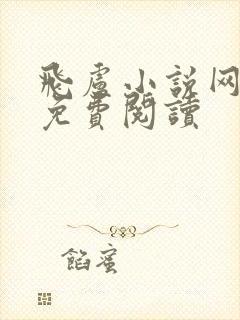 飛盧小説网
免費閱讀
餡蜜